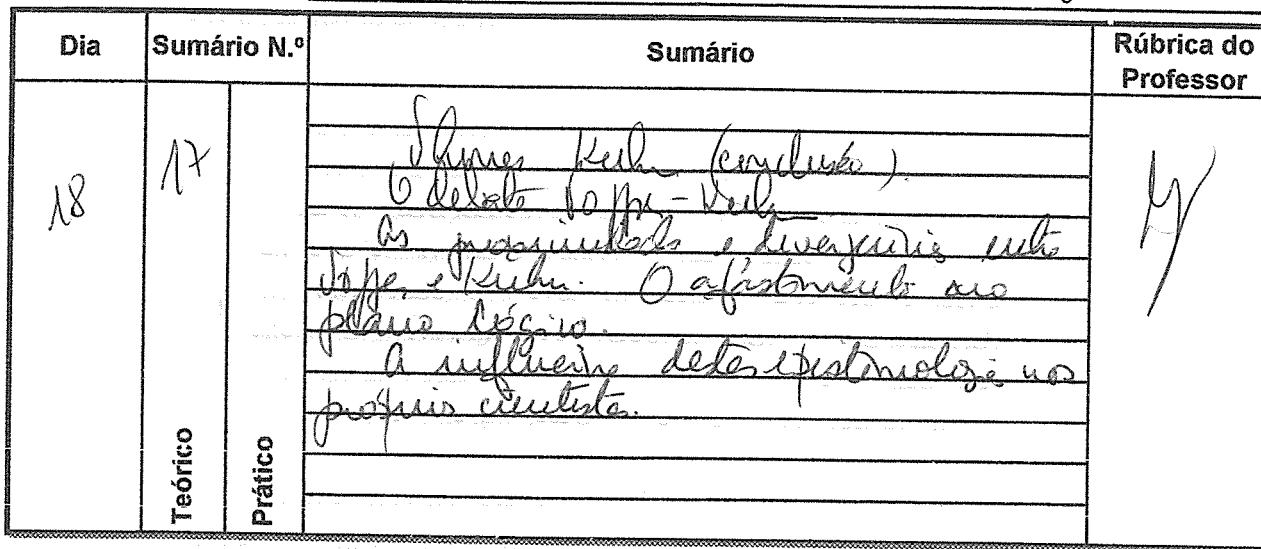 Dia Sumário N.º Sumário Rúbrica do Professor
18 17
Thomas Kuhn (conclusão).
O debate Popper-Kuhn
As proximidades e divergências entre
Popper e Kuhn. O afastamento no
plano lógico.
A influência destas epistemologias nos
próprios cientistas.
Teórico
Prático